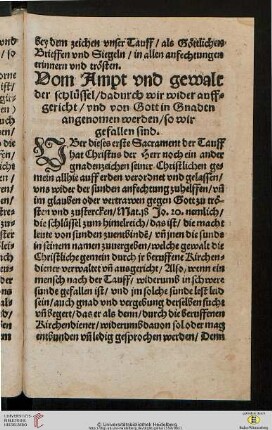 bey dem zeichen vnser Tauff / als Göttlichen
Brieffen vnd Siegeln / in allen anfechtungen
erinnern vnd trösten.
Vom Ampt vnd gewalt
der schlüssel / dadurch wir wider auff-
gericht / vnd von Gott in Gnaden
angenomen werden / so wir
gefallen sind.
Vber dieses erste Sacrament der Tauff
hat Christus der Herr noch ein ander
gnadenzeichen seiner Christlichen ge-
mein allhie auff erden verordnet vnd gelassen /
vns wider der sunden anfechtung zuhelffen / vñ
im glauben oder vertrawen gegen Gott zu trö-
sten vnd zustercken / Mat. 18 Jo. 20. nemlich /
die schlüssel zum himelreich / das ist / die macht
leute von sunden zuentbinde / vñ jnen die sunde
in seinem namen zuuergeben / welche gewalt die
Christliche gemein durch jr beruffene Kirchen-
diener verwaltet vñ ausgericht / Also / wenn ein
mensch nach der Tauff / widerumb in schwere
sunde gefallen ist / vnd jm solche sunde lest leid
sein / auch gnad vnd vergebung derselben sucht
vñ begert / das er als denn / durch die beruffenen
Kirchendiener / widerumb dauon sol oder mag
entbunden vñ ledig gesprochen werden / Denn
UNIVERSITÄTS-
BIBLIOTHEK
HEIDELBERG
© Universitätsbibliothek Heidelberg